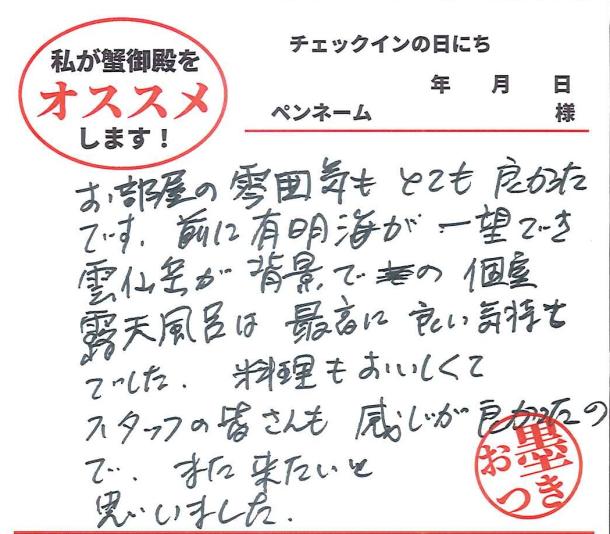 私が蟹御殿を
オススメ
します！
チェックインの日にち
年 月 日
ペンネーム 様
お部屋の雰囲気もとても良かった
です。前に有明海が一望でき
雲仙岳が背景での個室
露天風呂は最高に良い気持ち
でした。料理もおいしくて
スタッフの皆さんも感じが良かったの
で、また来たいと
思いました。
お墨
つき